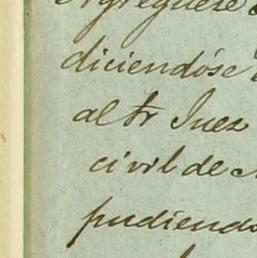 Agréguese
diciendóse
al Sr Juez
civil de
pudiendo